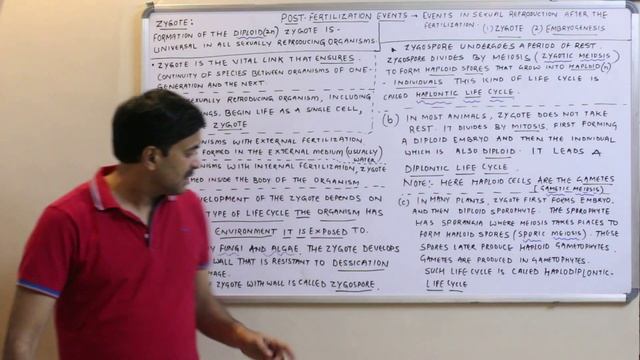 POST-FERTILIZATION EVENTS → EVENTS IN SEXUAL REPRODUCTION AFTER THE
FERTILIZATION: (1) ZYGOTE (2) EMBRYOGENESIS
ZYGOTE:
FORMATION OF THE DIPLOID (2n) ZYGOTE IS-
UNIVERSAL IN ALL SEXUALLY REPRODUCING ORGANISMS.
• ZYGOTE IS THE VITAL LINK THAT ENSURES
CONTINUITY OF SPECIES BETWEEN ORGANISMS OF ONE-
GENERATION AND THE NEXT.
SEXUALLY REPRODUCING ORGANISM, INCLUDING
BEGIN LIFE AS A SINGLE CELL,
ZYGOTE
WITH EXTERNAL FERTILIZATION
FORMED IN THE EXTERNAL MEDIUM (USUALLY
WATER
WITH INTERNAL FERTILIZATION, ZYGOTE
INSIDE THE BODY OF THE ORGANISM
DEVELOPMENT OF THE ZYGOTE DEPENDS ON
TYPE OF LIFE CYCLE THE ORGANISM HAS
ENVIRONMENT IT IS EXPOSED TO.
FUNGI AND ALGAE. THE ZYGOTE DEVELOPS
WALL THAT IS RESISTANT TO DESSICATION
ZYGOTE WITH WALL IS CALLED ZYGOSPORE.
ZYGOSPORE UNDERGOES A PERIOD OF REST.
ZYGOSPORE DIVIDES BY MEIOSIS (ZYGOTIC MEIOSIS)
TO FORM HAPLOID SPORES THAT GROW INTO HAPLOID (n)
INDIVIDUALS THIS KIND OF LIFE CYCLE IS
CALLED HAPLONTIC LIFE CYCLE.
(b) IN MOST ANIMALS, ZYGOTE DOES NOT TAKE
REST. IT DIVIDES BY MITOSIS, FIRST FORMING
A DIPLOID EMBRYO AND THEN THE INDIVIDUAL
WHICH IS ALSO DIPLOID. IT LEADS A
DIPLONTIC LIFE CYCLE.
NOTE:- HERE HAPLOID CELLS ARE THE GAMETES
(GAMETIC MEIOSIS)
(c) IN MANY PLANTS, ZYGOTE FIRST FORMS EMBRYO
AND THEN DIPLOID SPOROPHYTE. THE SPOROPHYTE
HAS SPORANGIA WHERE MEIOSIS TAKES PLACES TO
FORM HAPLOID SPORES (SPORIC MEIOSIS). THESE
SPORES LATER PRODUCE HAPLOID GAMETOPHYTES.
GAMETES ARE PRODUCED IN GAMETOPHYTES.
SUCH LIFE CYCLE IS CALLED HAPLODIPLONTIC-
LIFE CYCLE